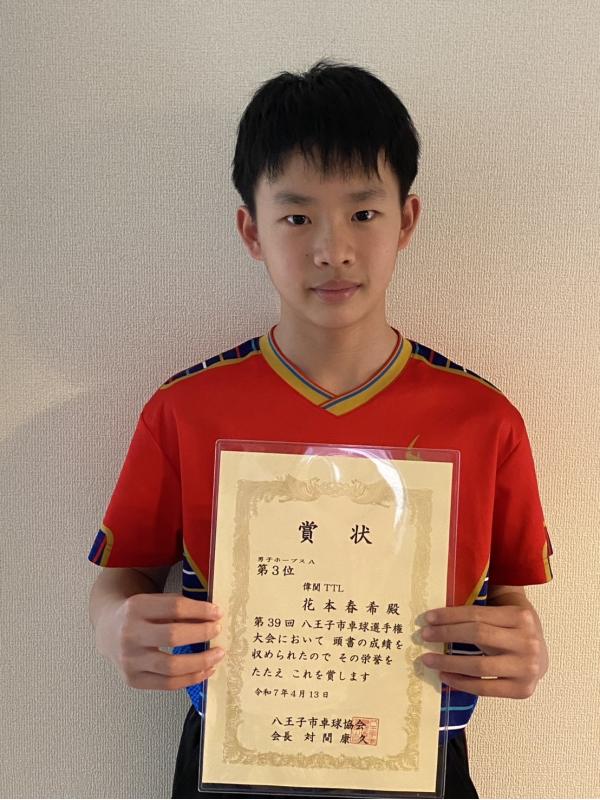 賞状
男子ホープスA
第3位
偉関TTL
花本春希殿
第39回 八王子市卓球選手権
大会において 頭書の成績を
収められたので その栄誉を
たたえ これを賞します
令和7年4月13日
八王子市卓球協会
会長 対間康久